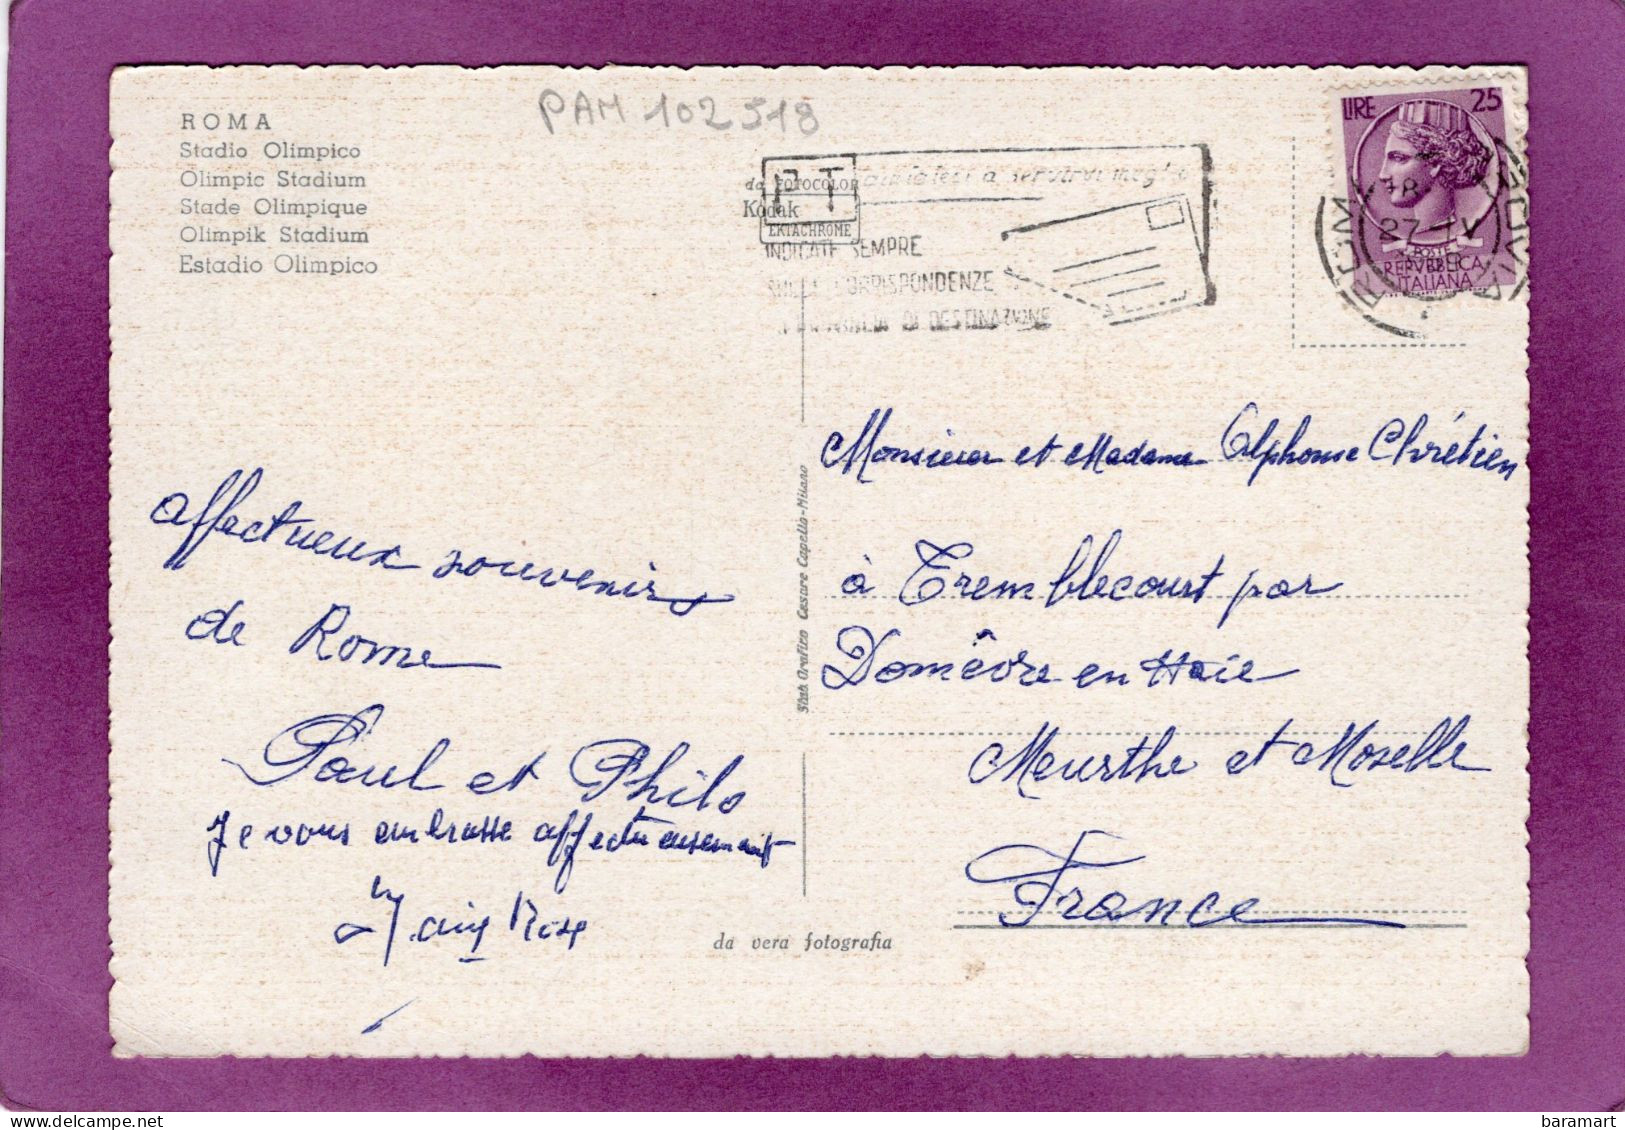 PAM 102518
ROMA
Stadio Olimpico
Olimpic Stadium
Stade Olimpique
Olimpik Stadium
Estadio Olimpico
da FOTOCOLOR
Kodak
EKTACHROME
PT
a servirvi meglio
INDICATE SEMPRE
SULLE CORRISPONDENZE
DI DESTINAZIONE
LIRE 25
18
27-IV
ROMA
POSTE
REPVBBLICA
ITALIANA
affectueux souvenirs
de Rome
Paul et Philo
Je vous embrasse affectueusement
Rose
Monsieur et Madame Alphonse Chrétien
à Tremblecourt par
Domêvre en Haie
Meurthe et Moselle
France
Stab. Grafico Cesare Capello-Milano
da vera fotografia
baramart
www.delcampe.net